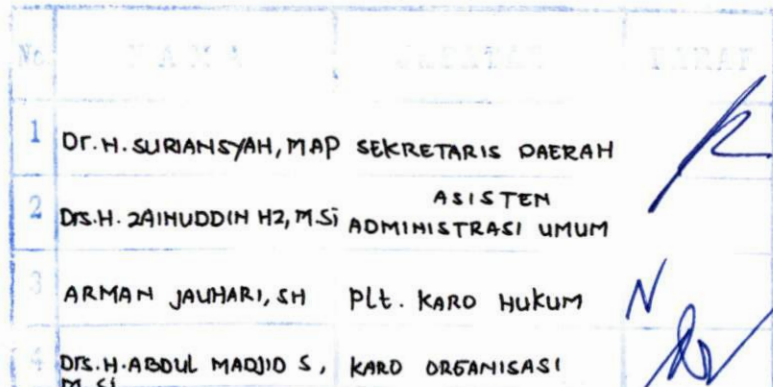 No NAMA JABATAN PARAF
1 Dr. H. SURIANSYAH, MAP SEKRETARIS DAERAH
2 Drs. H. ZAINUDDIN HZ, M.Si ASISTEN
ADMINISTRASI UMUM
3 ARMAN JAUHARI, SH Plt. KARO HUKUM
4 Drs. H. ABDUL MADJID S, KARO ORGANISASI
M.Si